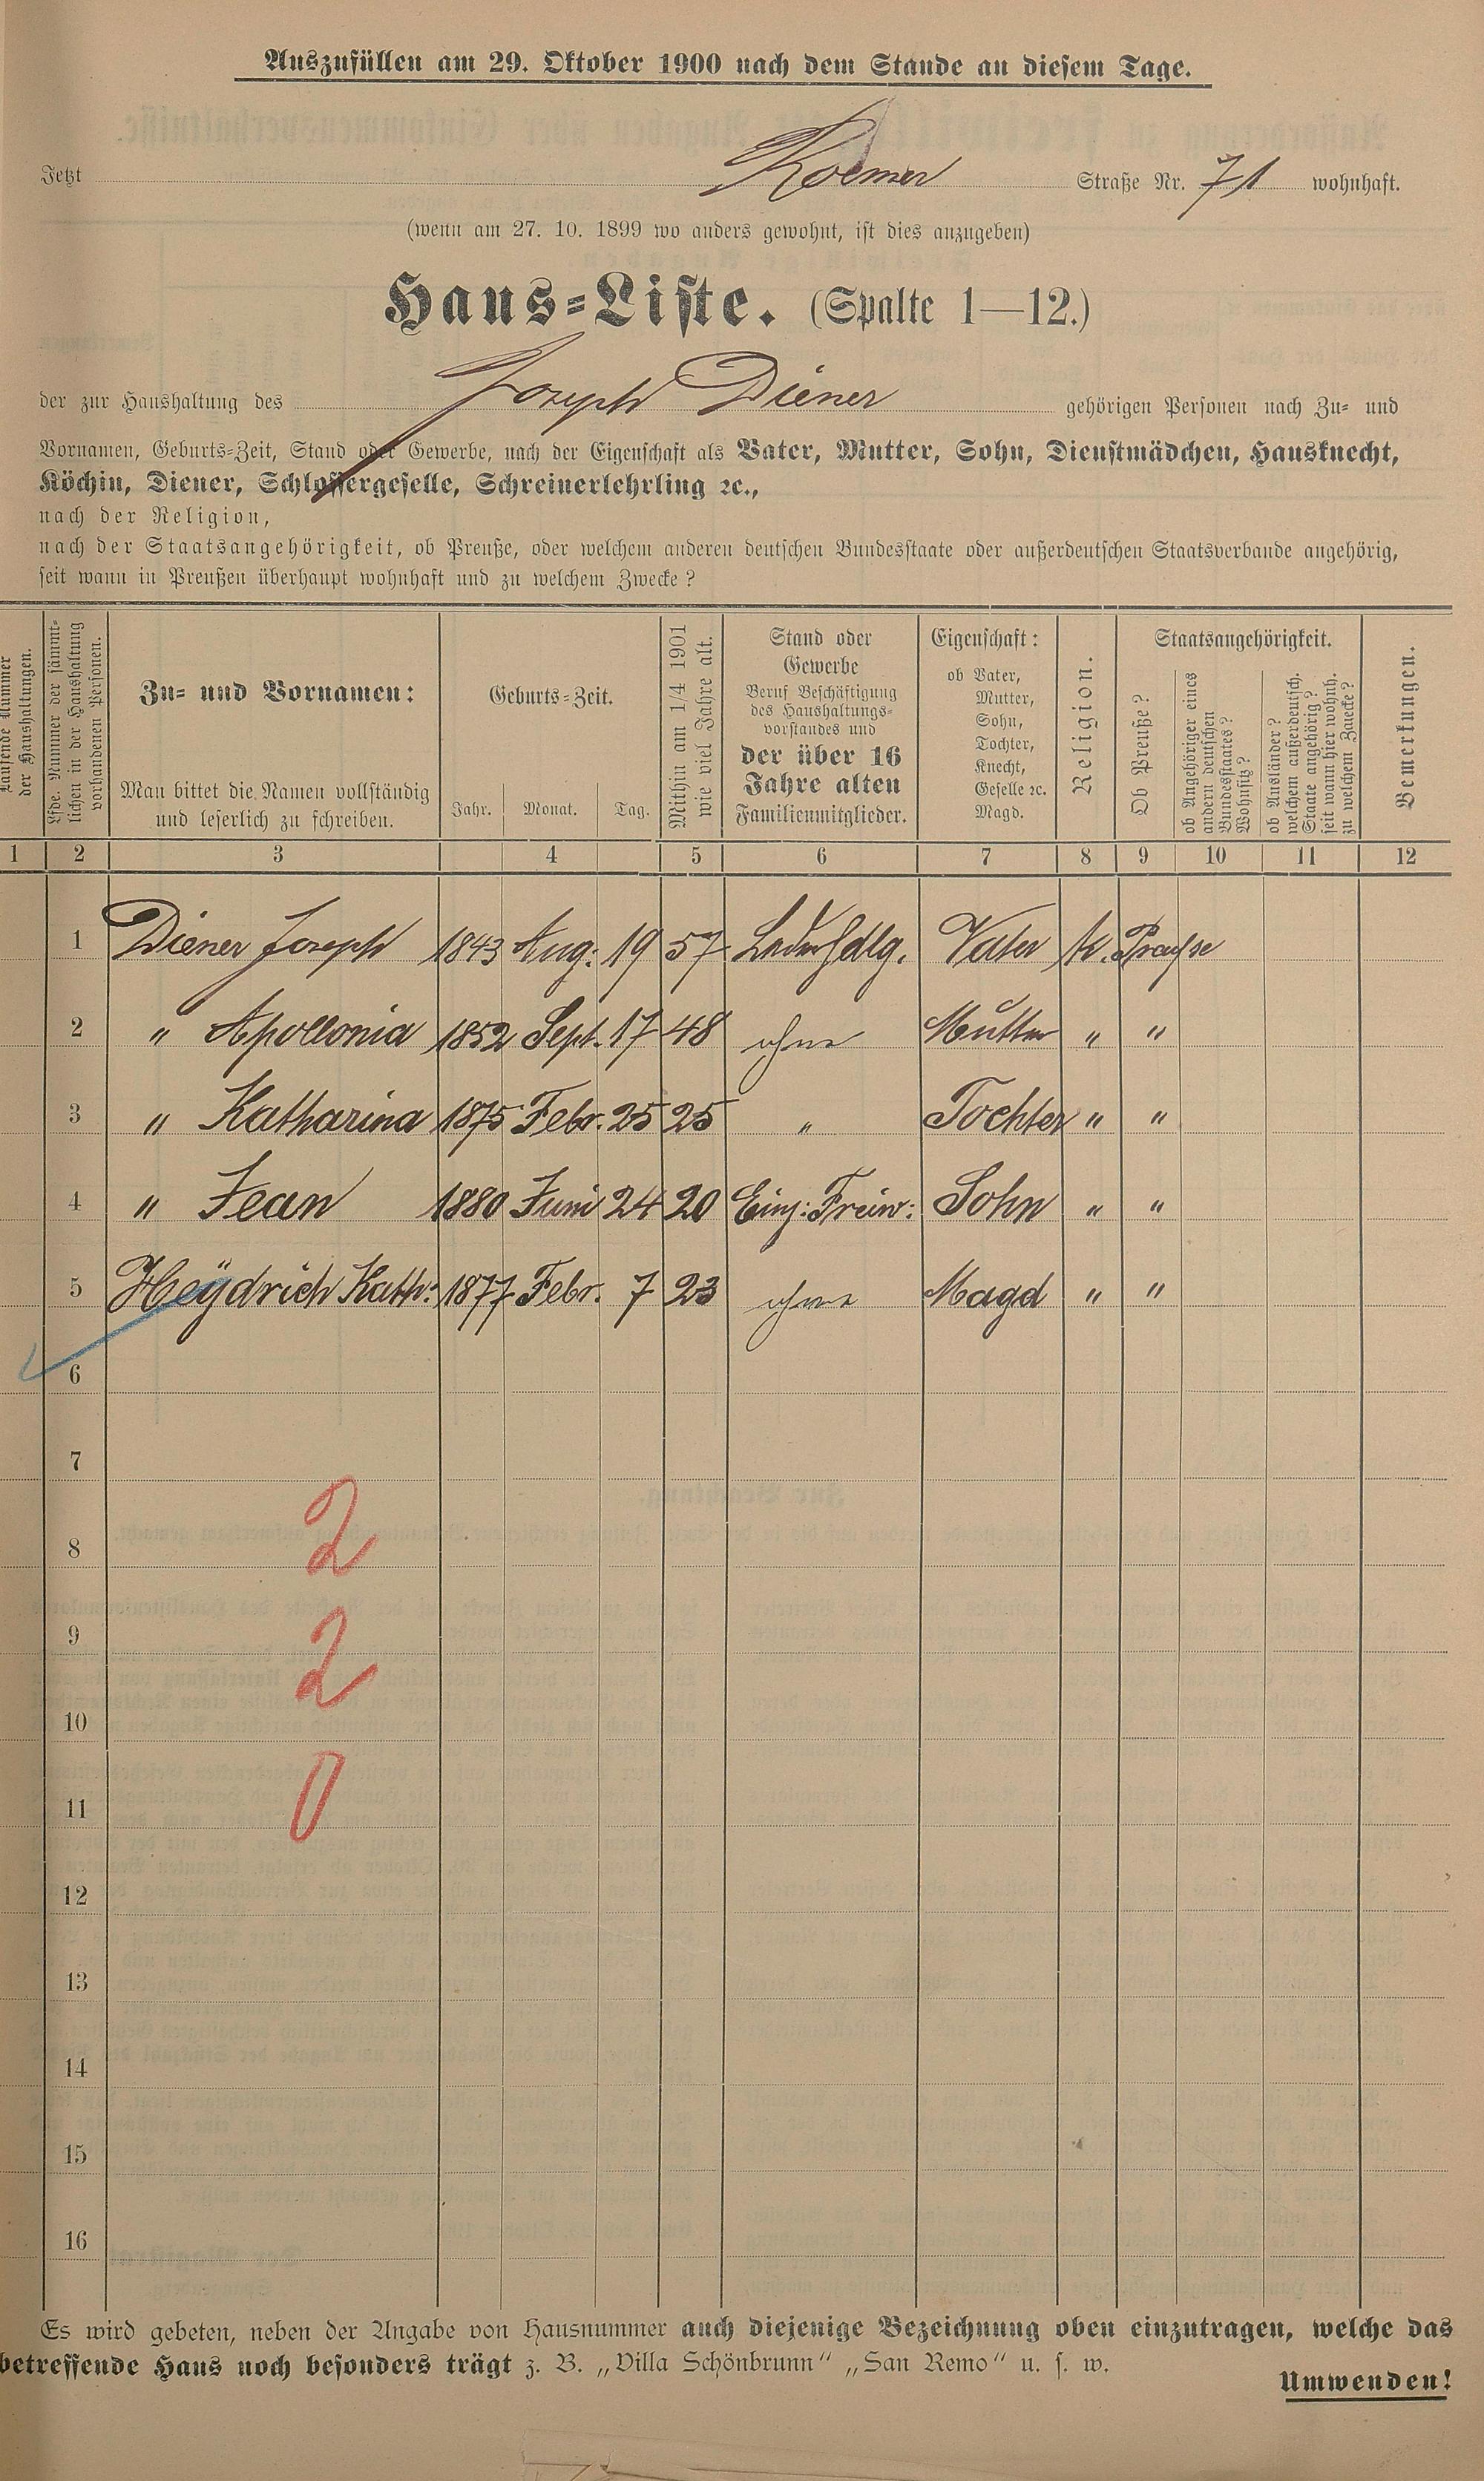 Auszufüllen am 29. Oktober 1900 nach dem Stande an diesem Tage.
Jetzt Roemer Straße Nr. 71 wohnhaft.
(wenn am 27. 10. 1899 wo anders gewohnt, ist dies anzugeben)
Haus-Liste. (Spalte 1—12.)
der zur Haushaltung des Joseph Diener gehörigen Personen nach Zu- und
Vornamen, Geburts-Zeit, Stand oder Gewerbe, nach der Eigenschaft als Vater, Mutter, Sohn, Dienstmädchen, Hausknecht,
Köchin, Diener, Schlossergeselle, Schreinerlehrling ꝛc.,
nach der Religion,
nach der Staatsangehörigkeit, ob Preuße, oder welchem anderen deutschen Bundesstaate oder außerdeutschen Staatsverbande angehörig,
seit wann in Preußen überhaupt wohnhaft und zu welchem Zwecke?
Laufende Nummer
der Haushaltungen.
Lfde. Nummer der sämmt-
lichen in der Haushaltung
vorhandenen Personen.
Zu- und Vornamen:
Man bittet die Namen vollständig
und leserlich zu schreiben.
Geburts-Zeit.
Jahr. Monat. Tag.
Mithin am 1/4 1901
wie viel Jahre alt.
Stand oder
Gewerbe
Beruf Beschäftigung
des Haushaltungs-
vorstandes und
der über 16
Jahre alten
Familienmitglieder.
Eigenschaft:
ob Vater,
Mutter,
Sohn,
Tochter,
Knecht,
Geselle ꝛc.
Magd.
Religion.
Staatsangehörigkeit.
Ob Preuße?
ob Angehöriger eines
andern deutschen
Bundesstaates?
Wohnsitz?
ob Ausländer?
welchem außerdeutsch.
Staate angehörig?
seit wann hier wohnh.
zu welchem Zwecke?
Bemerkungen.
1 2 3 4 5 6 7 8 9 10 11 12
1 Diener Joseph 1843 Aug: 19 57 Lederhdlg. Vater k. Preuße
2 " Apollonia 1852 Sept. 17 48 ohne Mutter " "
3 " Katharina 1875 Febr. 25 25 " Tochter " "
4 " Jean 1880 Juni 24 20 Einj: Freiw: Sohn " "
5 Heÿdrich Kath: 1877 Febr. 7 23 ohne Magd " "
6
7
8 2
9
10 2
11 0
12
13
14
15
16
Es wird gebeten, neben der Angabe von Hausnummer auch diejenige Bezeichnung oben einzutragen, welche das
betreffende Haus noch besonders trägt z. B. „Villa Schönbrunn" „San Remo" u. s. w.
Umwenden!